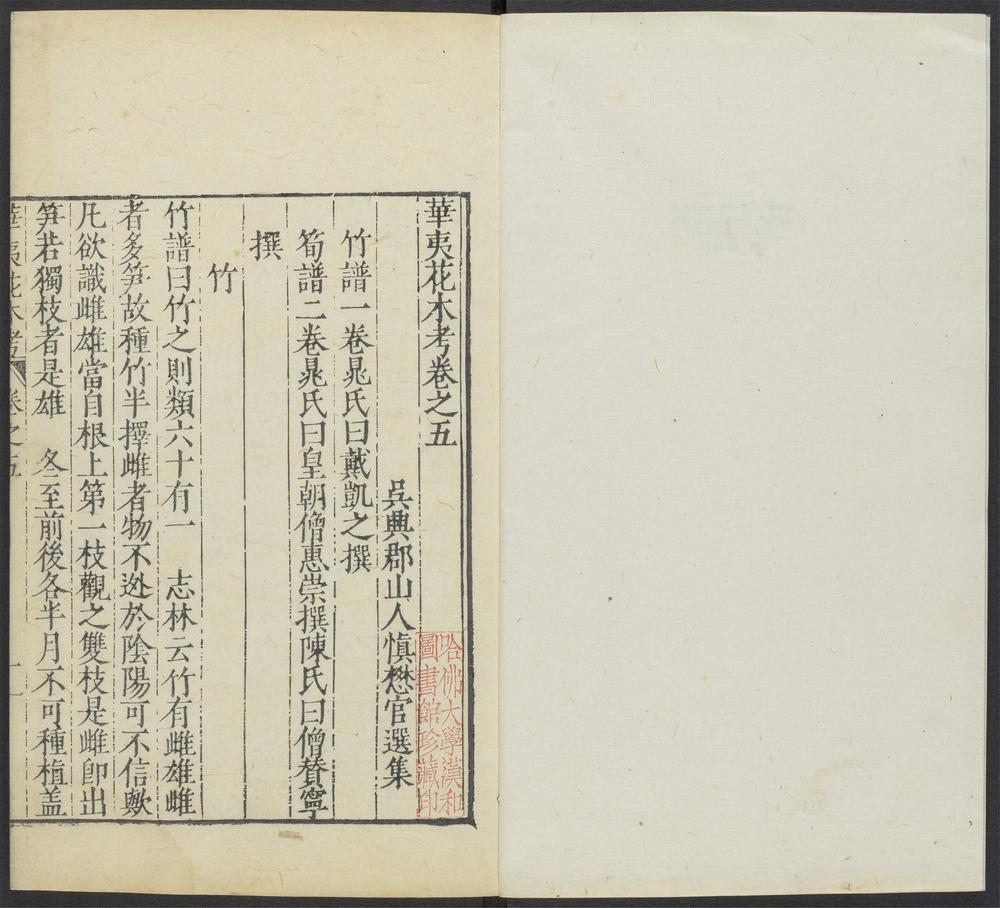 華夷花木考卷之五
吳興郡山人愼懋官選集
竹譜一卷晁氏曰戴凱之撰
筍譜二卷晁氏曰皇朝僧惠崇撰陳氏曰僧賛寧
撰
竹
竹譜曰竹之則類六十有一　志林云竹有雌雄雌
者多笋故種竹半擇雌者物不迯於陰陽可不信歟
凡欲識雌雄當自根上第一枝觀之雙枝是雌卽出
笋若獨枝者是雄　冬至前後各半月不可種植盖
華夷花木考　卷之五　一
哈佛大學漢和
圖書館珍藏印